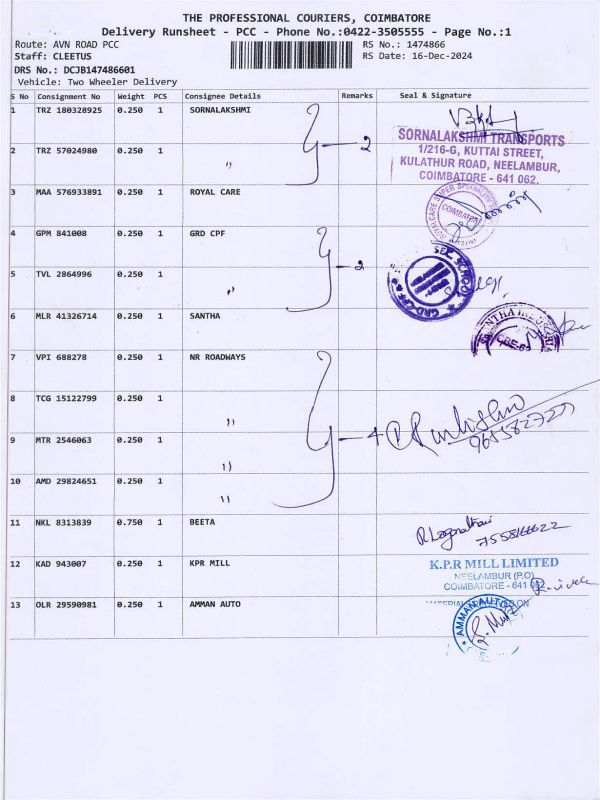 THE PROFESSIONAL COURIERS, COIMBATORE
Delivery Runsheet - PCC - Phone No.:0422-3505555 - Page No.:1
Route: AVN ROAD PCC
RS No.: 1474866
Staff: CLEETUS
RS Date: 16-Dec-2024
DRS No.: DCJB147486601
Vehicle: Two Wheeler Delivery
S No Consignment No Weight PCS Consignee Details Remarks Seal & Signature
1 TRZ 180328925 0.250 1 SORNALAKSHMI
2 TRZ 57024980 0.250 1 "
- 2
SORNALAKSHMI TRANSPORTS
1/216-G, KUTTAI STREET,
KULATHUR ROAD, NEELAMBUR,
COIMBATORE - 641 062.
3 MAA 576933891 0.250 1 ROYAL CARE
COIMBATORE
4 GPM 841008 0.250 1 GRD CPF
5 TVL 2864996 0.250 1 "
- 2
6 MLR 41326714 0.250 1 SANTHA
7 VPI 688278 0.250 1 NR ROADWAYS
8 TCG 15122799 0.250 1 "
9 MTR 2546063 0.250 1 "
10 AMD 29824651 0.250 1 "
- 4
11 NKL 8313839 0.750 1 BEETA
12 KAD 943007 0.250 1 KPR MILL
K.P.R MILL LIMITED
NEELAMBUR (P.O)
COIMBATORE - 641 062
13 OLR 29590981 0.250 1 AMMAN AUTO
AMMAN AUTO